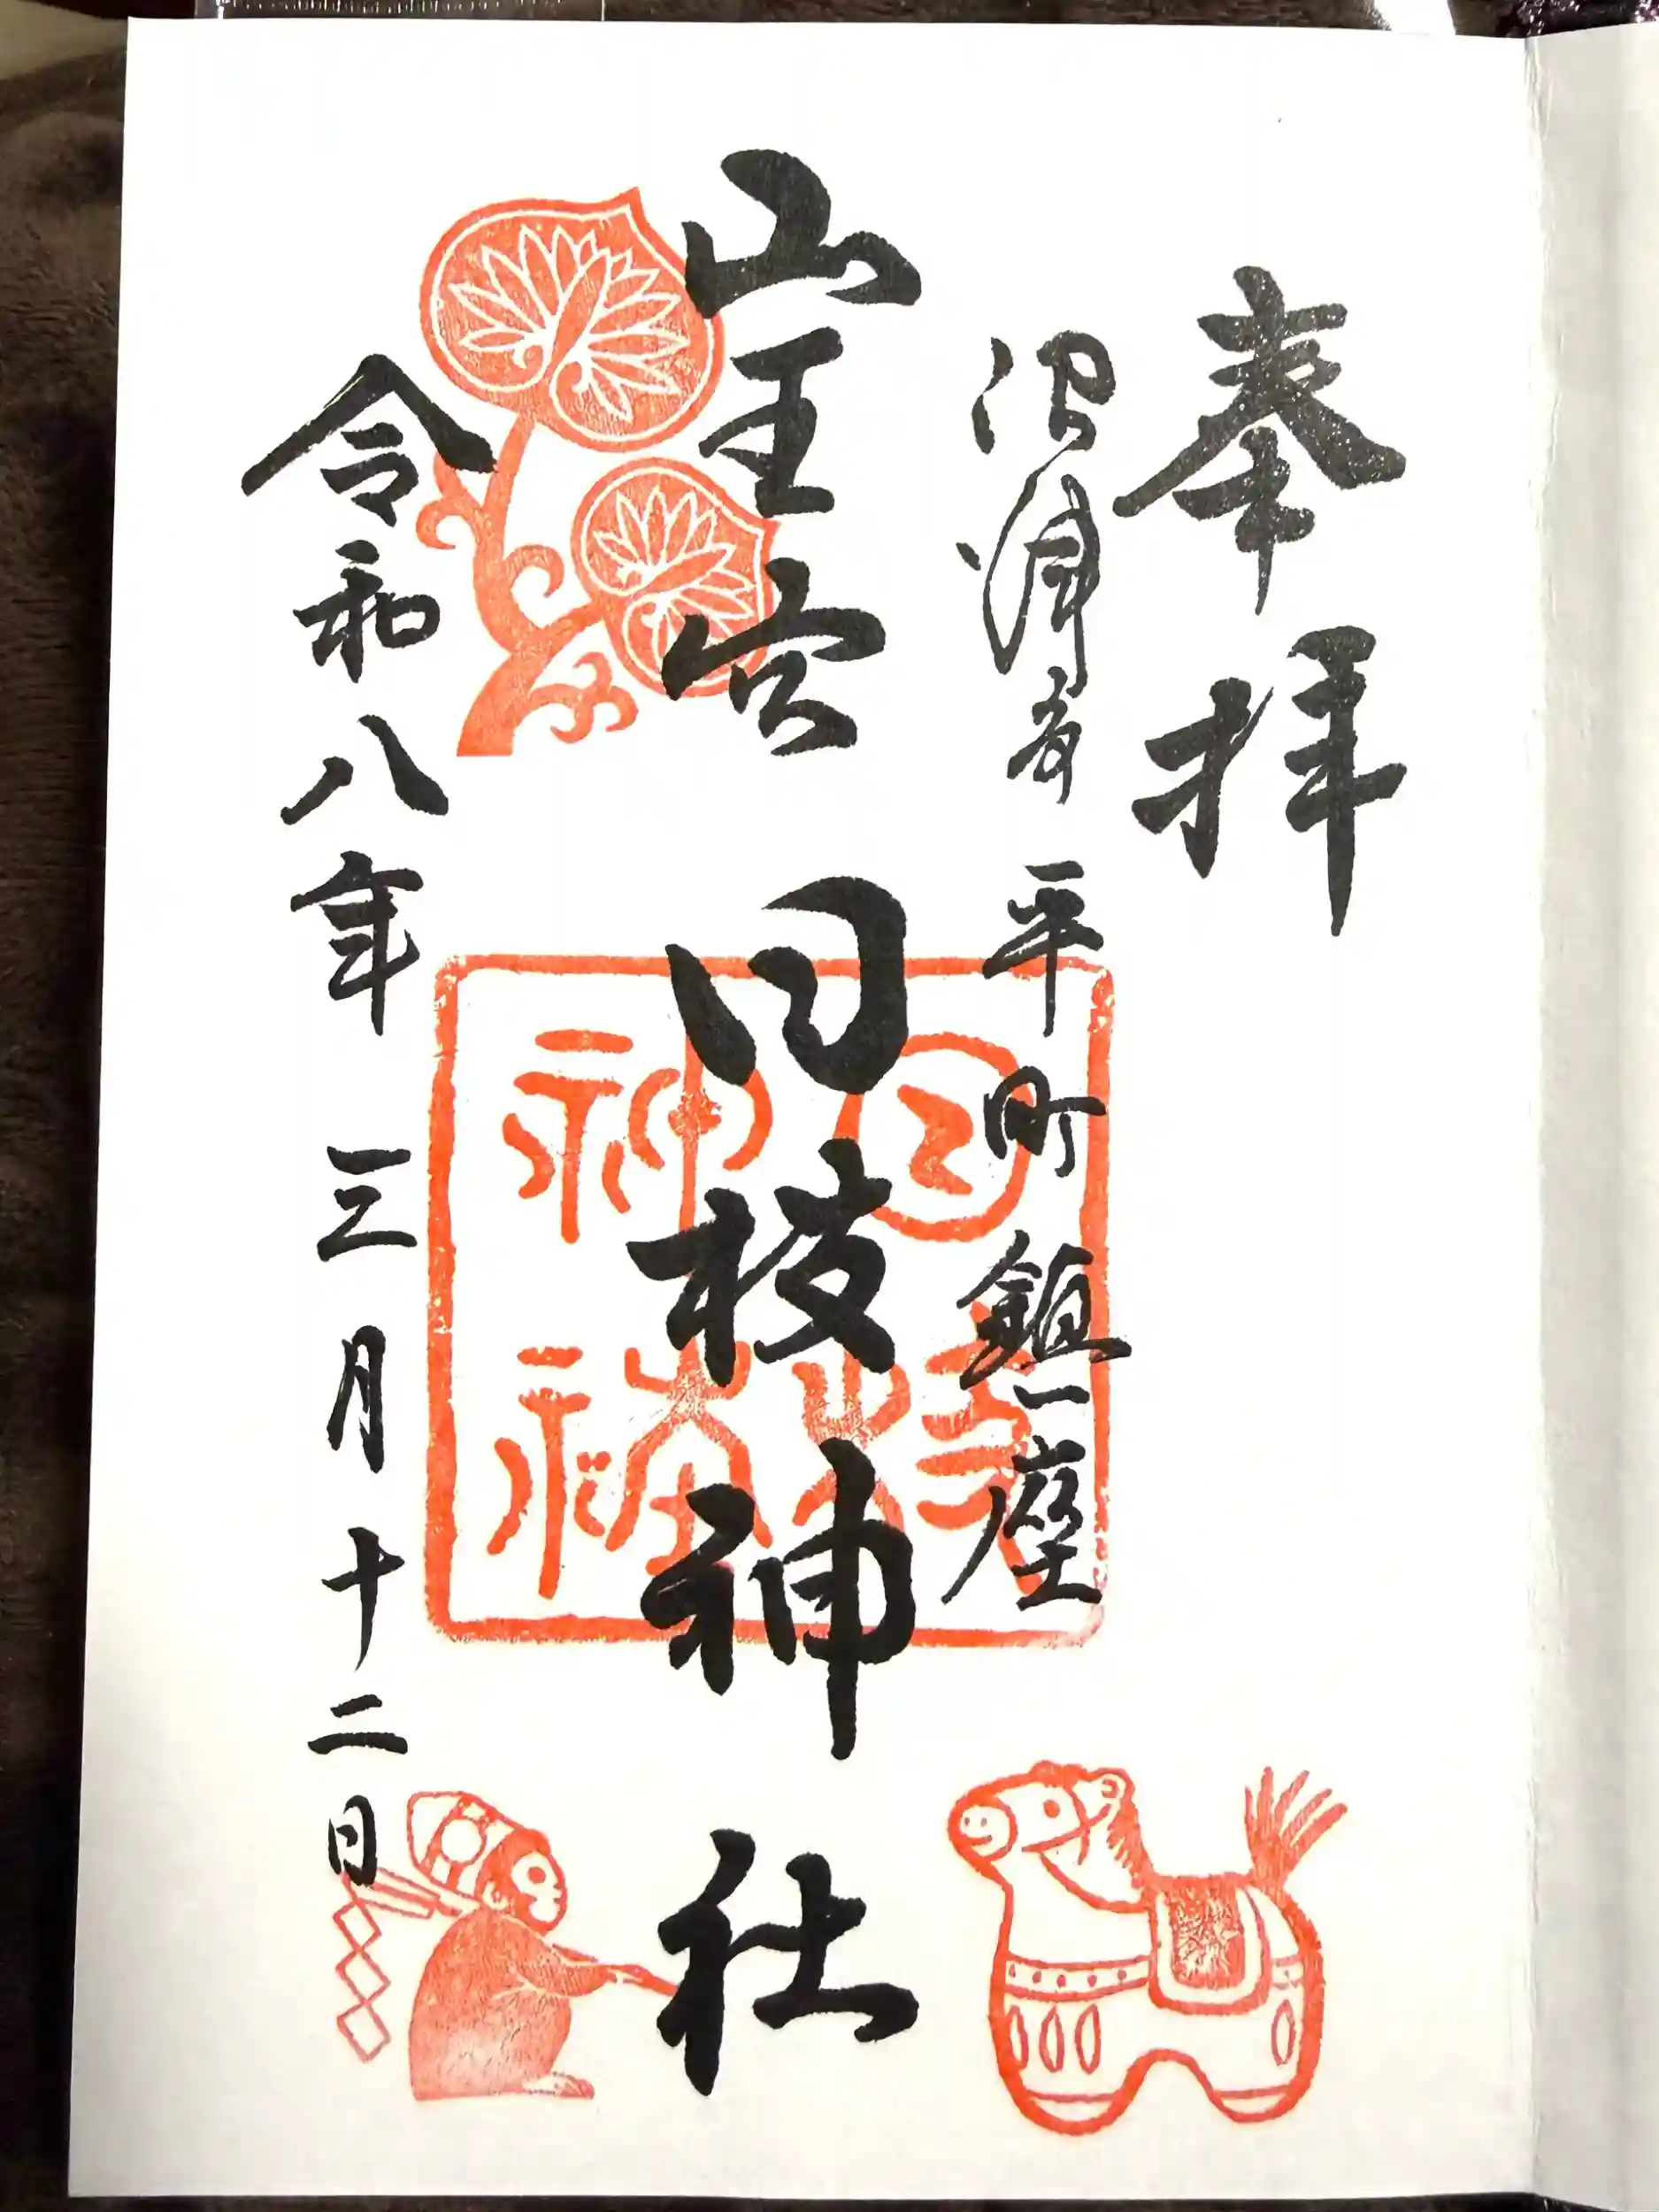 奉拝
沼津市 平町 鎮座
山王宮 日枝神社
日枝神社
令和八年 三月十二日